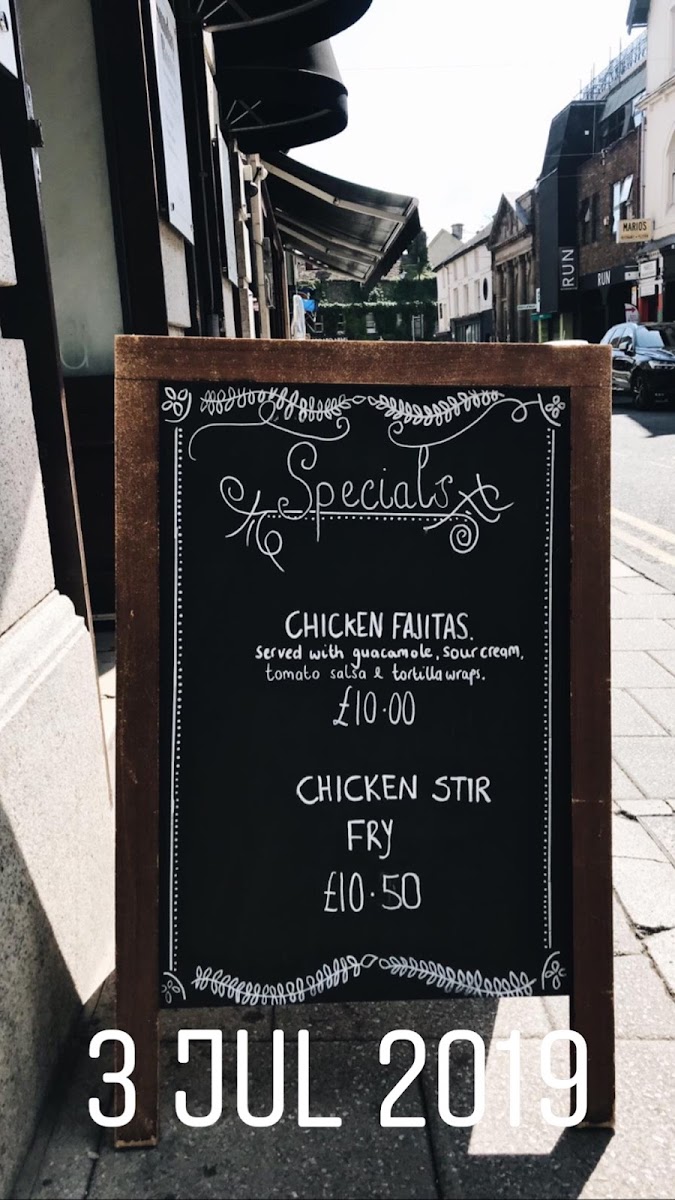 MARIOS
RUN
RUN
Specials
CHICKEN FAJITAS.
served with guacamole, sour cream,
tomato salsa & tortilla wraps.
£10.00
CHICKEN STIR
FRY
£10.50
3 JUL 2019